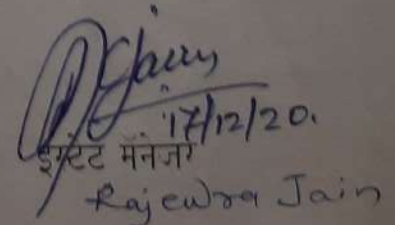 Jain
17/12/20.
इस्टेट मॅनेजर
Rajendra Jain